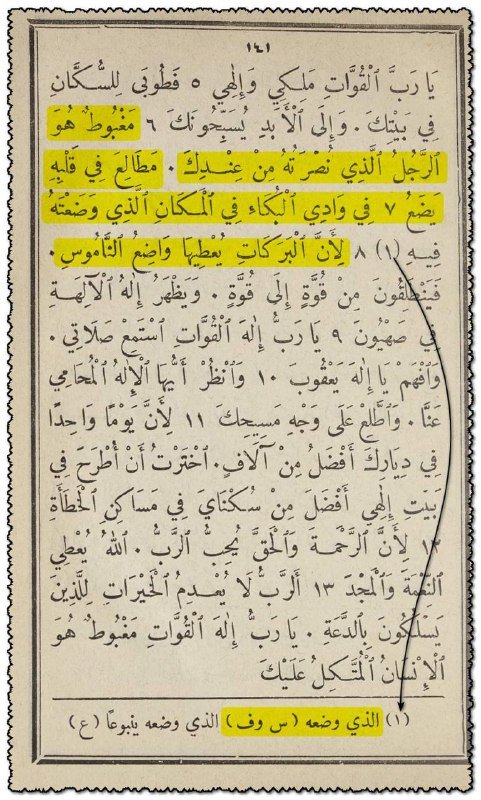 ١٤١
يَا رَبَّ ٱلْقُوَّاتِ مَلِكِي وَإِلٰهِي ٥ فَطُوبَى لِلسُّكَّانِ
فِي بَيْتِكَ . وَإِلَى ٱلْأَبَدِ يُسَبِّحُونَكَ ٦ مَغْبُوطٌ هُوَ
ٱلرَّجُلُ ٱلَّذِي نُصْرَتُهُ مِنْ عِنْدِكَ . مَطَالِعَ فِي قَلْبِهِ
يَضَعُ ٧ فِي وَادِي ٱلْبُكَاءِ فِي ٱلْمَكَانِ ٱلَّذِي وَضَعْتَهُ
فِيهِ (١) ٨ لِأَنَّ ٱلْبَرَكَاتِ يُعْطِيهَا وَاضِعُ ٱلنَّامُوسِ .
فَيَنْطَلِقُونَ مِنْ قُوَّةٍ إِلَى قُوَّةٍ . وَيَظْهَرُ إِلٰهُ ٱلْآلِهَةِ
فِي صَهْيُونَ ٩ يَا رَبُّ إِلٰهَ ٱلْقُوَّاتِ ٱسْتَمِعْ صَلَاتِي .
وَٱفْهَمْ يَا إِلٰهَ يَعْقُوبَ ١٠ وَٱنْظُرْ أَيُّهَا ٱلْإِلٰهُ ٱلْمُحَامِي
عَنَّا . وَٱطَّلِعْ عَلَى وَجْهِ مَسِيحِكَ ١١ لِأَنَّ يَوْمًا وَاحِدًا
فِي دِيَارِكَ أَفْضَلُ مِنْ آلَافٍ . ٱخْتَرْتُ أَنْ أُطْرَحَ فِي
بَيْتِ إِلٰهِي أَفْضَلَ مِنْ سُكْنَايَ فِي مَسَاكِنِ ٱلْخَطَأَةِ
١٢ لِأَنَّ ٱلرَّحْمَةَ وَٱلْحَقَّ يُحِبُّ ٱلرَّبُّ . ٱللهُ يُعْطِي
ٱلنِّعْمَةَ وَٱلْمَجْدَ ١٣ أَلرَّبُّ لَا يُعْدِمُ ٱلْخَيْرَاتِ لِلَّذِينَ
يَسْلُكُونَ بِٱلدَّعَةِ . يَا رَبُّ إِلٰهَ ٱلْقُوَّاتِ مَغْبُوطٌ هُوَ
ٱلْإِنْسَانُ ٱلْمُتَّكِلُ عَلَيْكَ
(١) الذي وضعه (س وف) الذي وضعه ينبوعًا (ع)